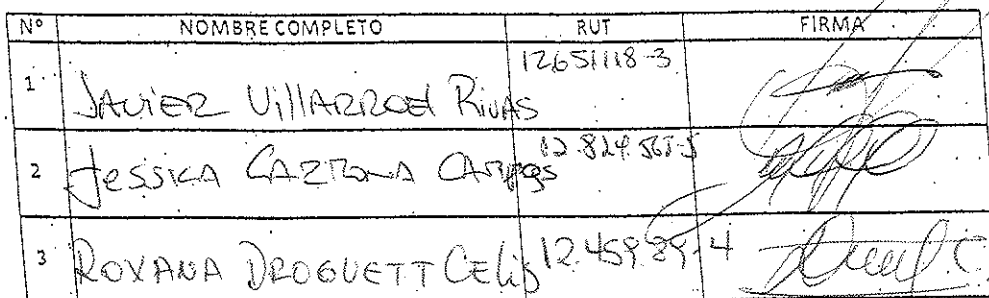 Nº NOMBRE COMPLETO RUT FIRMA
1 JAVIER VillARROEl RiVAS 12651118-3
2 JESSICA 12.824.565-5
3 ROXANA DROGUETT CELiS 12.459.89-4